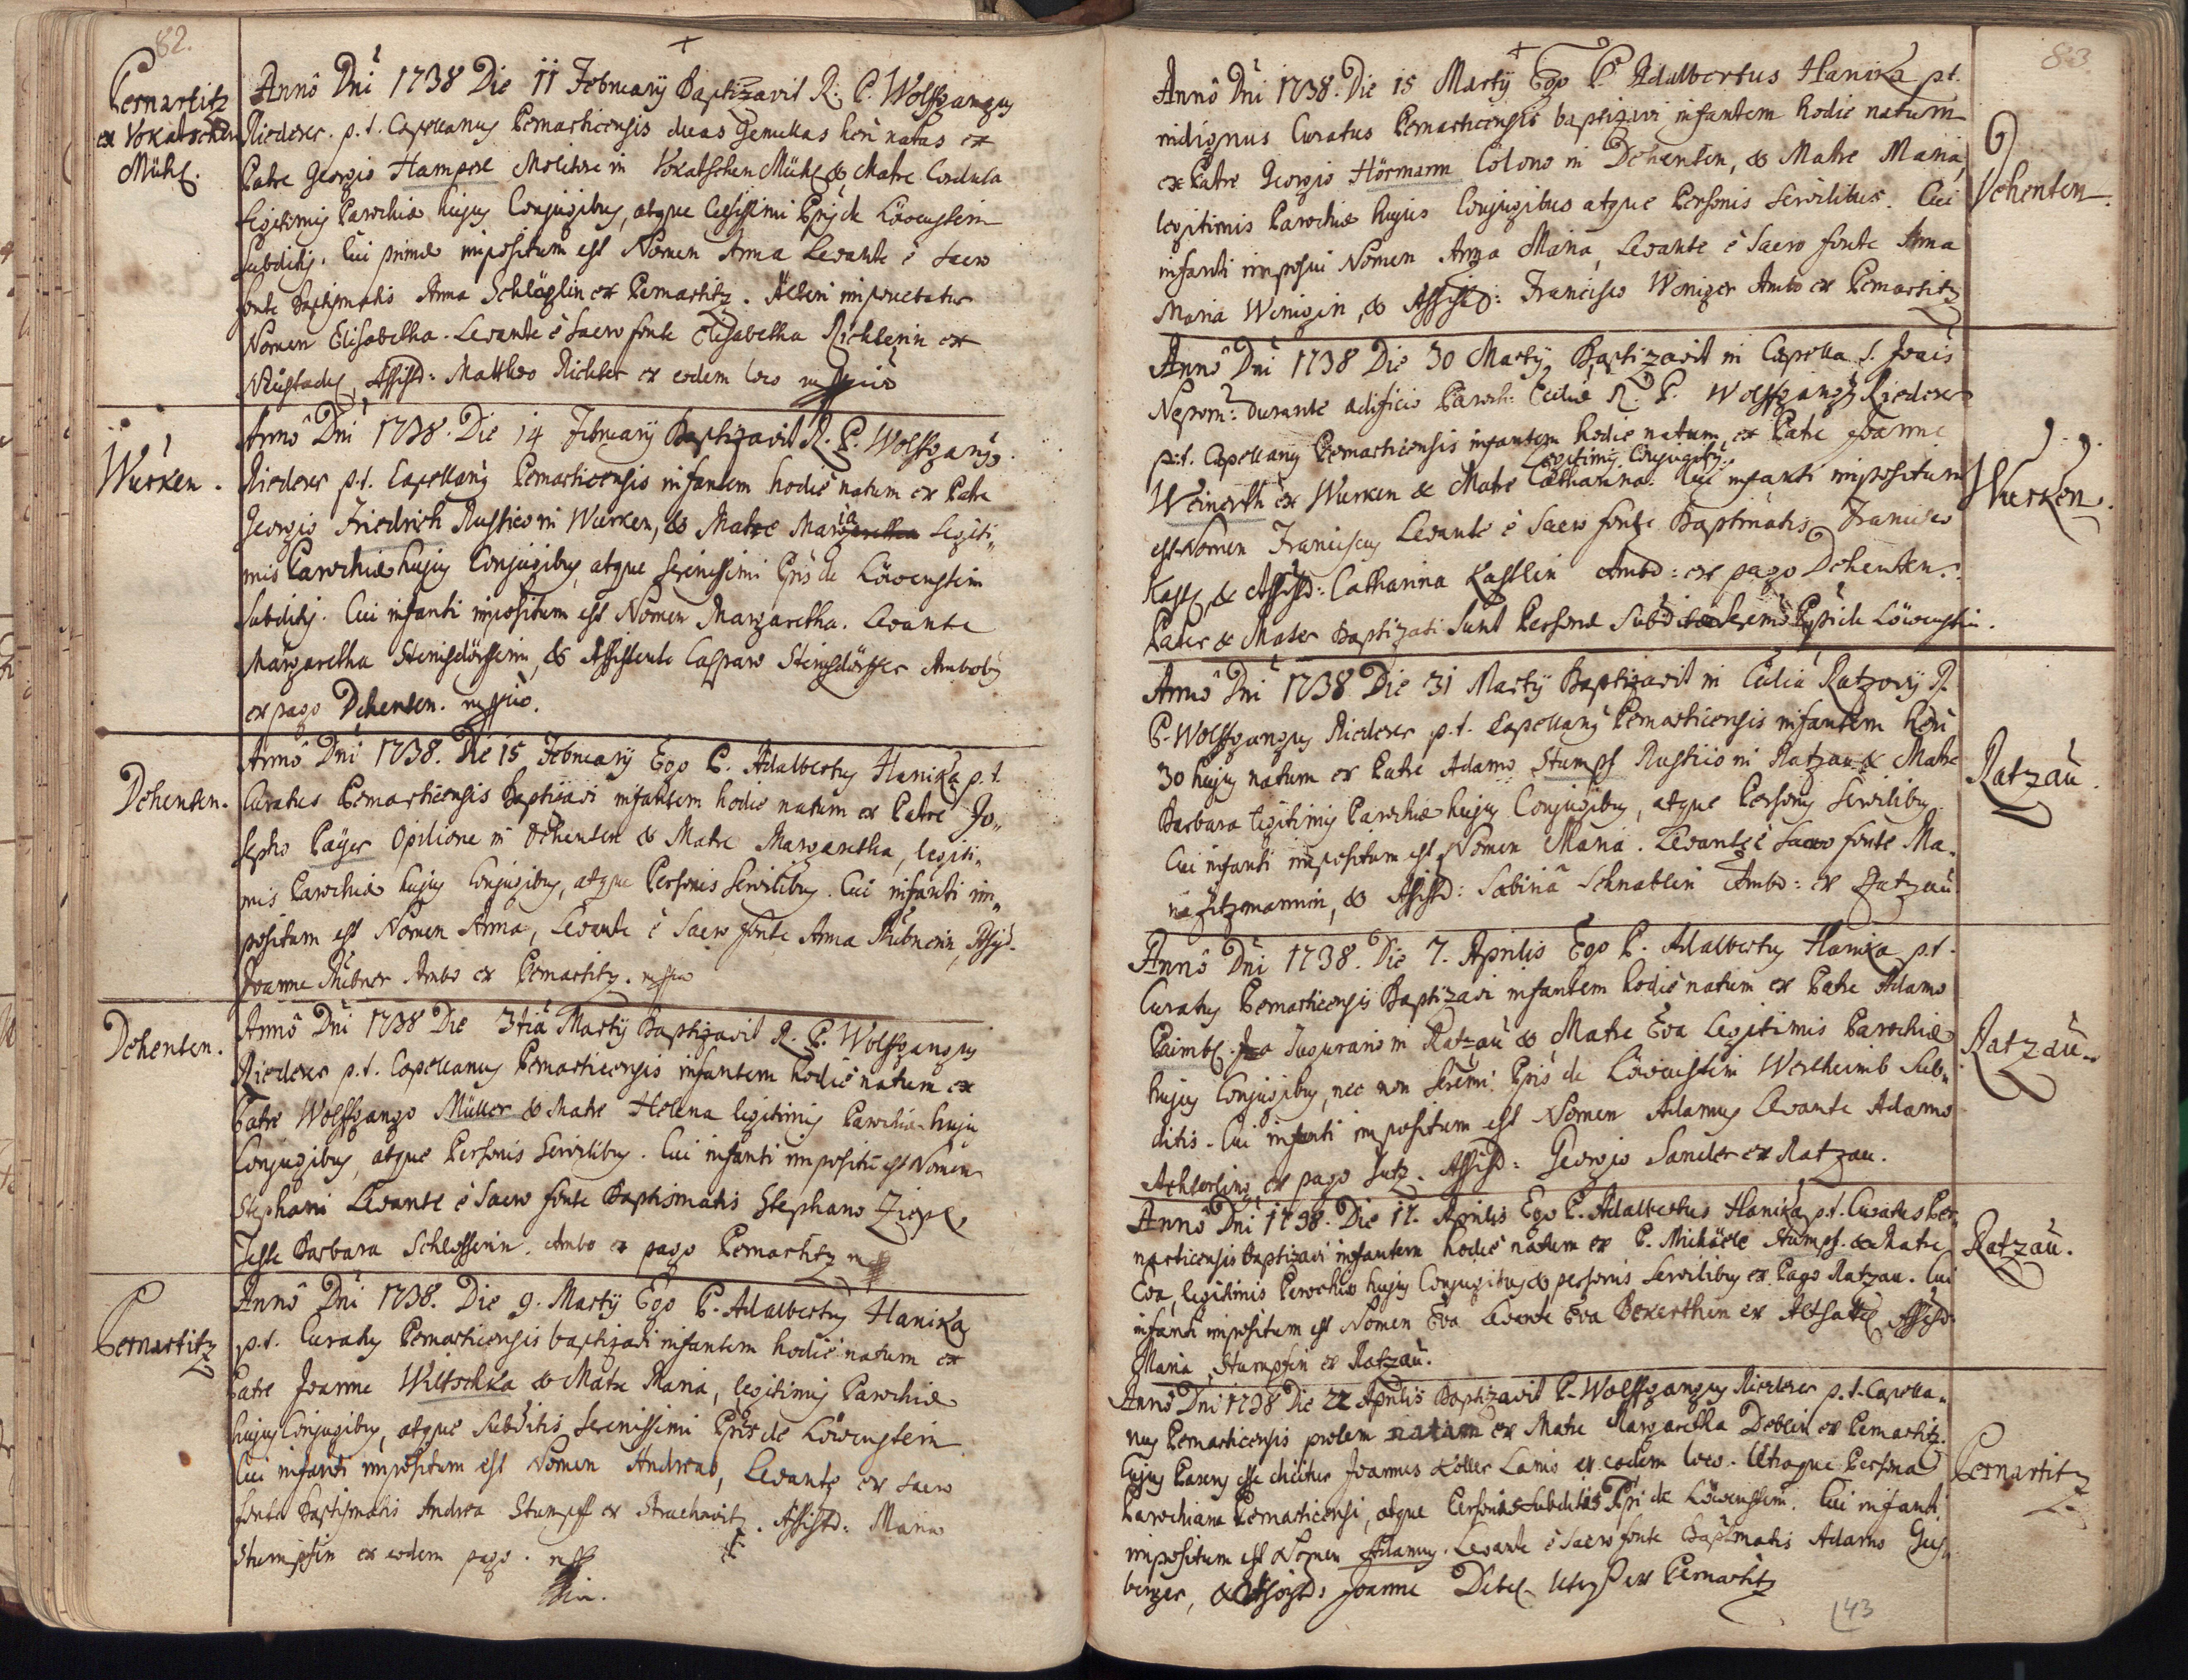 82.
Pernartitz
ex Vokatschen
Mühl.
Annô Dni 1738 Die 11 Februarÿ Baptizavit R. P. Wolffgangus
Riederer p. t. Capellanus Pernarticensis duas Gemellas heri natas ex
Patre Georgio Hamperl Molitore in Vokatschen Mühl & Matre Cordula
Legitimis Parochiæ hujus Conjugibus, atque Celsissimi Pris de Löwenstein
Subditis. Cui primæ impositum est Nomen Anna Levante è Sacro
fonte Baptismatis Anna Schlöglin ex Pernartitz. Alteri
Nomen Elisabetha. Levante è Sacro fonte Elisabetha Richterin ex
Assistd: Mattheo Richter ex eodem loco mppria
Wurken.
Annô Dni 1738. Die 14 Februarÿ Baptizavit R. P. Wolffgang9
Riederer p. t. Capellan9 Pernarticensis infantem hodiè natum ex Patre
Georgio Friedrich Rustico in Wurken, & Matre Maria Legiti„
mis Parochiæ hujus Conjugibus, atque Serenissimi Pris de Löwenstein
Subditis. Cui infanti impositum est Nomen Margaretha. Levante
Margaretha Steinsdörfferin, & Assistente Casparo Steinsdörffer Ambobus
ex pago Dehenten. mppria.
Dehenten.
Annô Dni 1738. Die 15 Februarÿ Ego P. Adalbertus Hanika p. t.
Curatus Pernarticensis Baptizavi infantem hodie natum ex Patre Jo„
sepho Paÿer Opilione in Dehenten & Matre Margaretha, legiti„
mis Parochiæ hujus Conjugibus, atque Personis Servilibus. Cui infanti im„
positum est Nomen Anna, Levante è Sacro fonte Anna Hübnerin,
Joanne Hübner Ambo ex Pernartitz. mppria
Dehenten.
Annô Dni 1738 Die 3tiâ Martÿ Baptizavit R. P. Wolffgangus
Riederer p. t. Capellanus Pernarticensis infantem hodiè natum ex
Patre Wolffgango Müller & Matre Helena legitimis Parochiæ hujus
Conjugibus, atque Personis Servilibus. Cui infanti impositū est Nomen
Stephani Levante è Sacro fonte Baptismatis Stephano Zierl,
Teste Barbara Schlosserin. Ambo ex pago Pernartitz mp
Pernartitz
Annô Dni 1738. Die 9. Martÿ Ego P. Adalbertus Hanika
p. t. Curatus Pernarticensis baptizavi infantem hodiè natum ex
Patre Joanne Wiltschka & Matre Maria, legitimis Parochiæ
hujus Conjugibus, atque Subditis Serenissimi Pris de Löwenstein
Cui infanti impositum est Nomen Andreas, Levante ex Sacro
fonte Baptismatis Andrea Stumpff ex Strachowitz. Assistd: Maria
Stumpfin ex eodem pago. mpp
83
Annô Dni 1738. Die 15 Martÿ Ego P. Adalbertus Hanika p. t.
indignus Curatus Pernarticensis baptizavi infantem hodie natum
ex Patre Georgio Hörmann Colono in Dehenten, & Matre Maria,
legitimis Parochiæ hujus Conjugibus atque Personis Servilibus. Cui
infanti imposui Nomen Anna Maria, Levante è Sacro fonte Anna
Maria Wenigin, & Assistd: Francisco Weniger Ambo ex Pernartitz
Dehenten.
Annô Dni 1738 Die 30 Martÿ Baptizavit in Capella S. Joais
Nepom: durante ædificio Paroch: Eccliæ R. P. Wolffgang9 Riederer
p. t. Capellanus Pernarticensis infantem hodie natum ex Patre Joanne
legitimis Conjugibus
Weinerth ex Wurken & Matre Catharina. Cui infanti impositum
est Nomen Franciscus Levante è Sacro fonte Baptismatis Francisco
Kastl, & Assistd: Catharina Kastlin Ambo: ex pago Dehenten.
Pater & Mater Baptizati Sunt Personæ Subditæ Seremi Pris de Löwenstein.
Wurken.
Annô Dni 1738 Die 31 Martÿ Baptizavit in Ecclia Ratzoviÿ R.
P. Wolffgangus Riederer p. t. Capellan9 Pernarticensis infantem heri
30 hujus natum ex Patre Adamo Stumpf Rustico in Ratzau & Matre
Barbara legitimis Parochiæ hujus Conjugibus, atque Personis Servilibus
Cui infanti impositum est Nomen Maria. Levante è Sacro fonte Ma„
ria Fitzmannin, & Assistd: Sabinâ Schnablin Ambo: ex Ratzau
Ratzau.
Annô Dni 1738. Die 7. Aprilis Ego P. Adalbertus Hanika p. t.
Curatus Pernarticensis Baptizavi infantem hodiè natum ex Patre Adamo
Paimbl. Inquirano in Ratzau & Matre Eva Legitimis Parochiæ
hujus Conjugibus, nec non Seremi: Pris de Löwenstein Wertheimb Sub„
ditis. Cui infanti impositum est Nomen Adamus Levante Adamo
Achterling ex pago Lutz. Assistd: Georgio Sander ex Ratzau.
Ratzau.
Annô Dni 1738. Die 17. Aprilis Ego P. Adalbertus Hanika p. t. Curatus Per„
narticensis baptizavi infantem hodiè natum ex P. Michäele Stumpf & Matre
Eva, legitimis Parochiæ hujus Conjugibus & personis Servilibus ex Pago Ratzau. Cui
infanti impositum est Nomen Eva Levante Eva Bekerthin ex Altsattl Assistd:
Maria Stumpfin ex Ratzau.
Ratzau.
Annô Dni 1738 Die 22 Aprilis Baptizavit P. Wolffgangus Riederer p. t. Capella„
nus Pernarticensis prolem natam ex Matre Margaretha Deblin ex Pernartitz.
Cujus Parens esse dicitur Joannes Koller Lanio ex eodem loco. Utraque Persona
Parochiana Pernarticensi, atque Personis Subditis Pri de Löwenstein. Cui infanti
impositum est Nomen Adamus. Levante è Sacro fonte Baptismatis Adamo
berger, & Assistd: Joanne Debel ex Pernartitz
Pernartitz
43